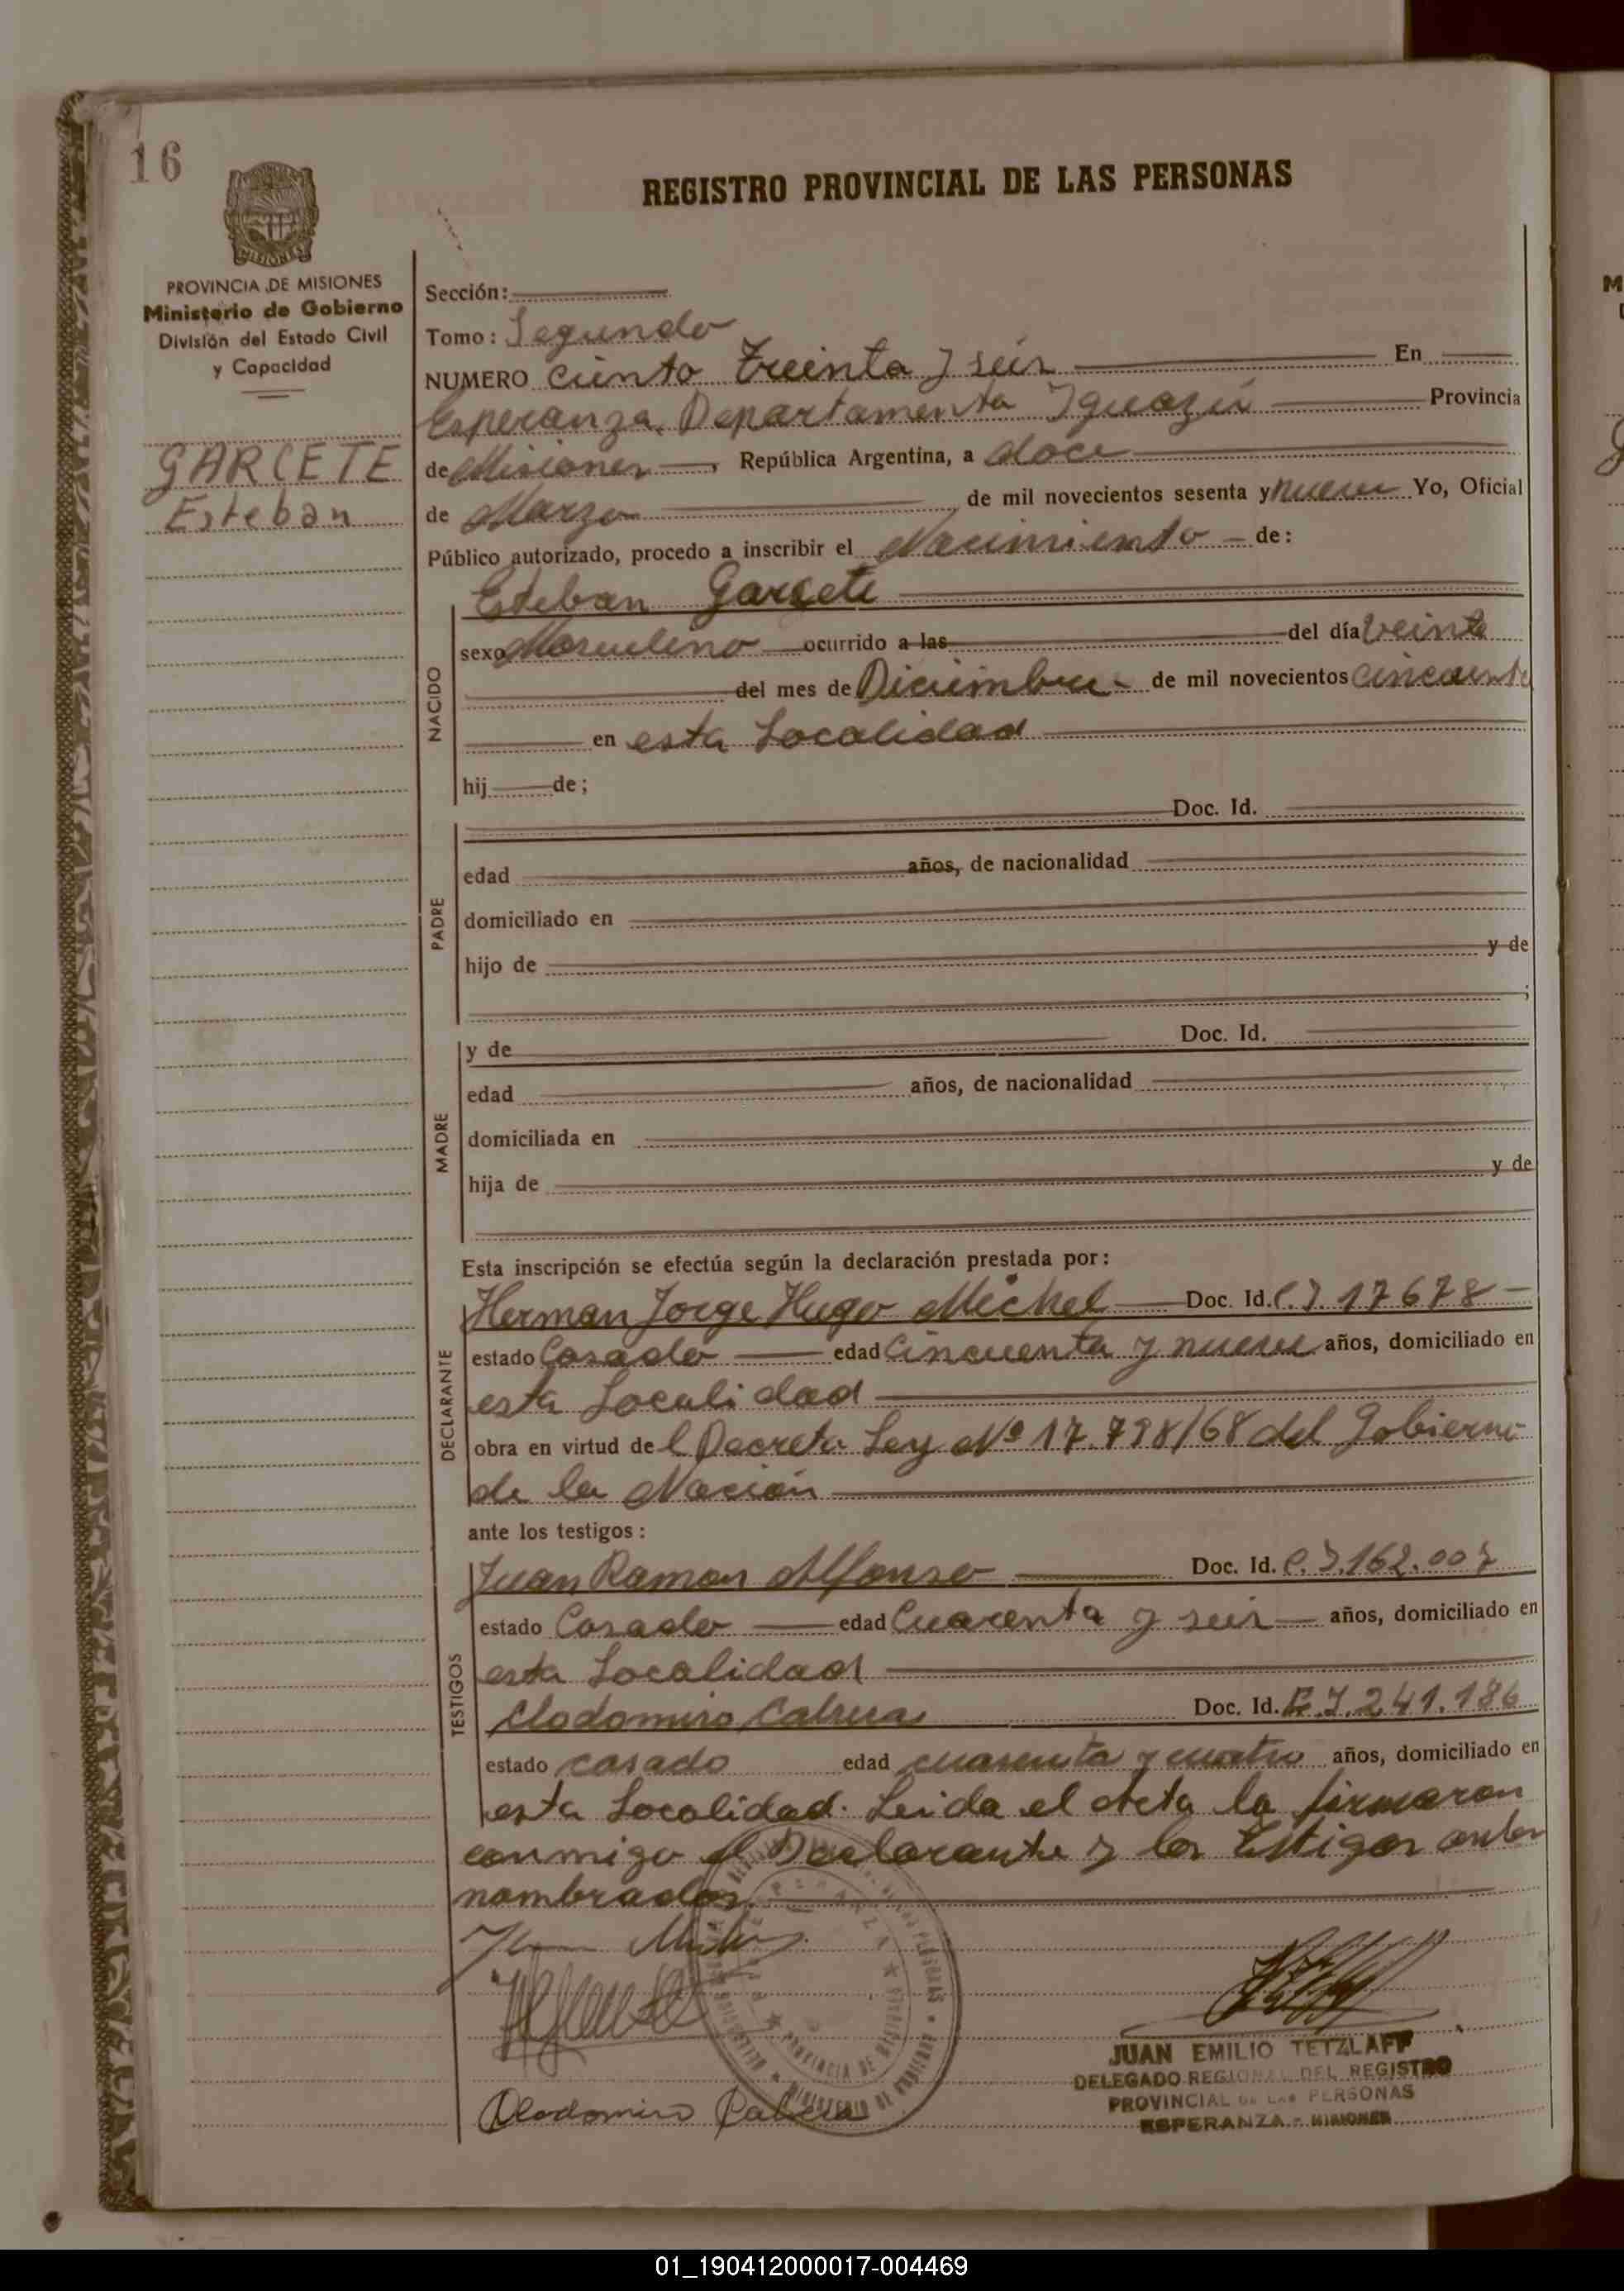 16
REGISTRO PROVINCIAL DE LAS PERSONAS
MISIONES
PROVINCIA DE MISIONES
Ministerio de Gobierno
División del Estado Civil
y Capacidad
GARCETE
Esteban
Sección:
Tomo: Segundo
NUMERO Ciento Treinta y seis En
Esperanza, Departamento Iguazú Provincia
de Misiones, República Argentina, a doce
de Marzo de mil novecientos sesenta y nueve Yo, Oficial
Público autorizado, procedo a inscribir el Nacimiento de:
Esteban Garcete
NACIDO
sexo Masculino ocurrido a las del día Veinte
del mes de Diciembre de mil novecientos Cincuenta
en esta Localidad
hij de;
PADRE
Doc. Id.
edad años, de nacionalidad
domiciliado en
hijo de y de
;
MADRE
y de Doc. Id.
edad años, de nacionalidad
domiciliada en
hija de y de
Esta inscripción se efectúa según la declaración prestada por:
DECLARANTE
Herman Jorge Hugo Michel Doc. Id. C.I. 17678
estado Casado edad Cincuenta y nueve años, domiciliado en
esta Localidad
obra en virtud de l Decreto Ley Nº 17.798/68 del Gobierno
de la Nación
ante los testigos:
TESTIGOS
Juan Ramon Alfonso Doc. Id. C.I. 162.007
estado Casado edad Cuarenta y seis años, domiciliado en
esta Localidad
Clodomiro Cabrera Doc. Id. C.I. 241.186
estado casado edad cuarenta y cuatro años, domiciliado en
esta Localidad. Leida el Acta la firmaron
conmigo el Declarante y los Testigos antes
nombrados.
Clodomiro Cabrera
JUAN EMILIO TETZLAFF
DELEGADO REGIONAL DEL REGISTRO
PROVINCIAL DE LAS PERSONAS
ESPERANZA - MISIONES
01_190412000017-004469